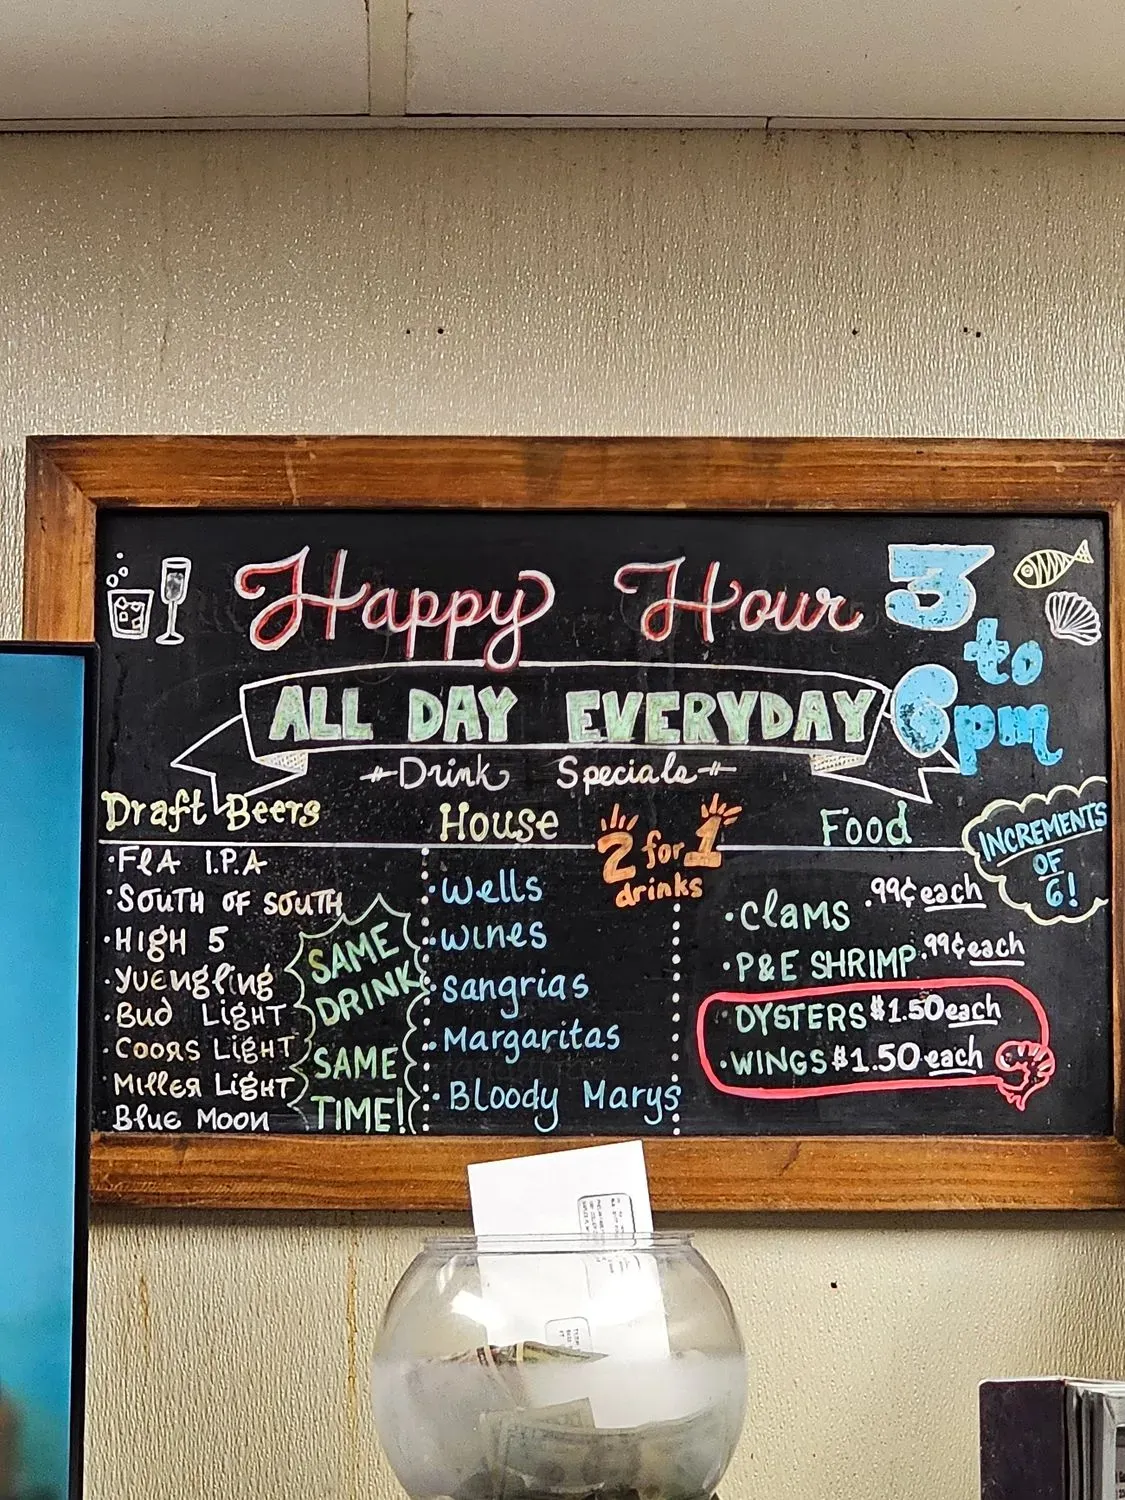 Happy Hour 3 to 6pm
ALL DAY EVERYDAY
Drink Specials
Draft Beers
FLA I.P.A
SOUTH OF SOUTH
HIGH 5
Yuengling
Bud LIGHT
COORS LIGHT
MILLER LIGHT
BLUE MOON
SAME
DRINK
SAME
TIME!
House
2 for 1
drinks
Wells
Wines
Sangrias
Margaritas
Bloody Marys
Food
INCREMENTS
OF
6!
CLAMS .99¢ each
P&E SHRIMP .99¢ each
OYSTERS $1.50 each
WINGS $1.50 each